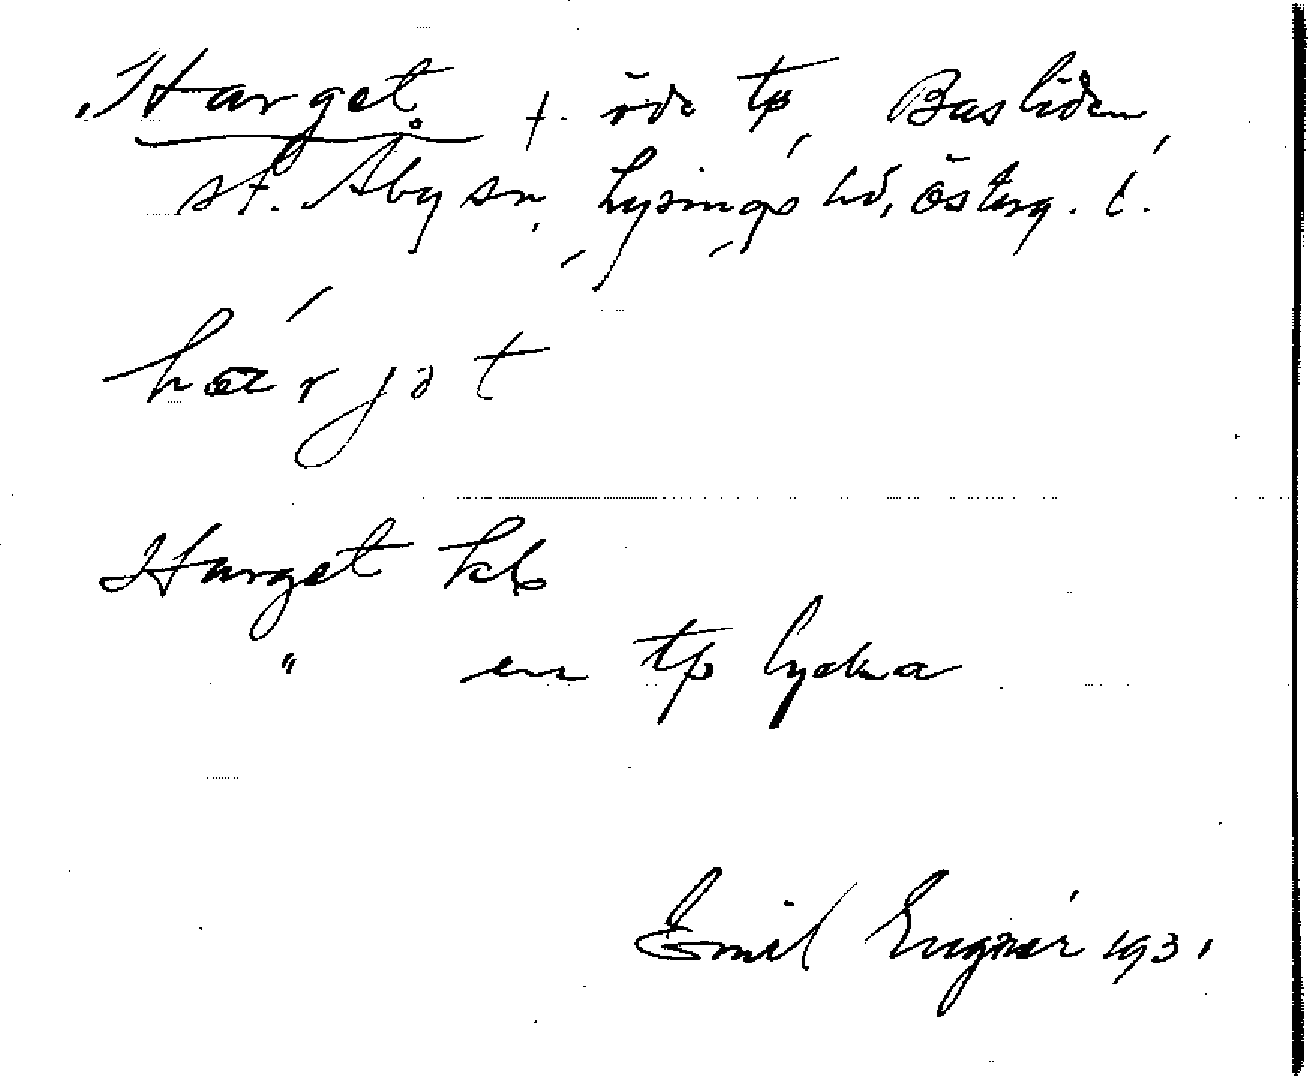 Harget, †. öde tp, Basliden,
st. Åby sn, Lysings hd, Österg. l.
hærjət
Harget kb
" en tp lycka
Emil Lugnér 1931